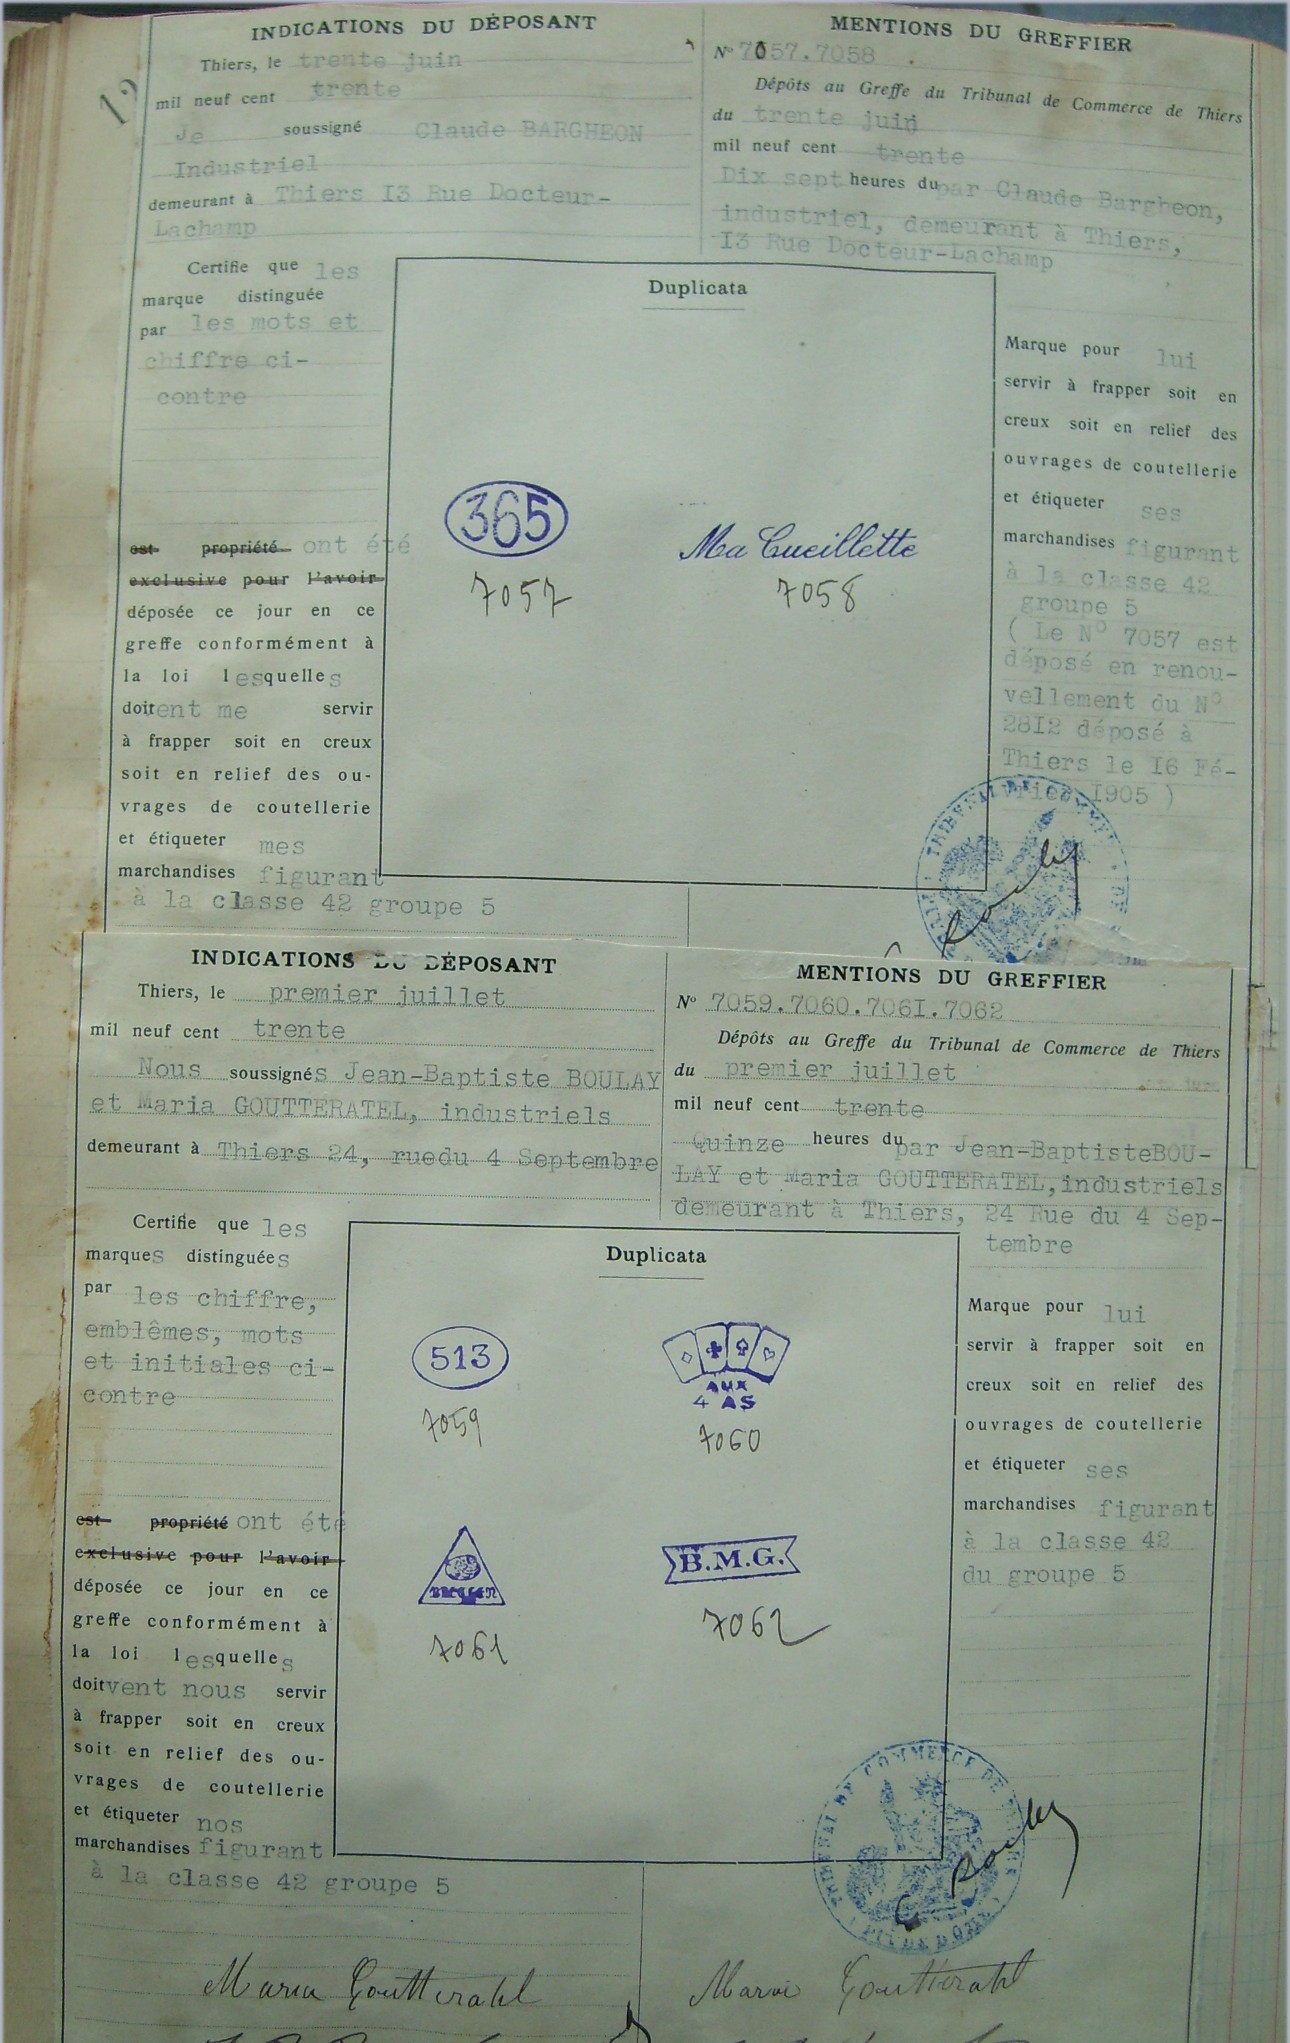 12
INDICATIONS DU DÉPOSANT
Thiers, le trente juin
mil neuf cent trente
Je soussigné Claude BARGHEON
Industriel
demeurant à Thiers I3 Rue Docteur-
Lachamp
MENTIONS DU GREFFIER
N° 7057.7058 .
Dépôts au Greffe du Tribunal de Commerce de Thiers
du trente juin
mil neuf cent trente
Dix sept heures du par Claude Bargheon,
industriel, demeurant à Thiers,
I3 Rue Docteur-Lachamp
Certifie que les
marque distinguée
par les mots et
chiffre ci-
contre
est propriété ont été
exclusive pour l'avoir
déposée ce jour en ce
greffe conformément à
la loi lesquelles
doivent me servir
à frapper soit en creux
soit en relief des ou-
vrages de coutellerie
et étiqueter mes
marchandises figurant
à la classe 42 groupe 5
Duplicata
365
7057
Ma Cueillette
7058
Marque pour lui
servir à frapper soit en
creux soit en relief des
ouvrages de coutellerie
et étiqueter ses
marchandises figurant
à la classe 42
groupe 5
( Le N° 7057 est
déposé en renou-
vellement du N°
28I2 déposé à
Thiers le I6 Fé-
vrier I905 )
INDICATIONS DU DÉPOSANT
Thiers, le premier juillet
mil neuf cent trente
Nous soussignés Jean-Baptiste BOULAY
et Maria GOUTTERATEL, industriels
demeurant à Thiers 24, ruedu 4 Septembre
MENTIONS DU GREFFIER
N° 7059.7060.706I.7062
Dépôts au Greffe du Tribunal de Commerce de Thiers
du premier juillet
mil neuf cent trente
Quinze heures du par Jean-BaptisteBOU-
LAY et Maria GOUTTERATEL,industriels
demeurant à Thiers, 24 Rue du 4 Sep-
tembre
Certifie que les
marques distinguées
par les chiffre,
emblêmes, mots
et initiales ci-
contre
est propriété ont été
exclusive pour l'avoir
déposée ce jour en ce
greffe conformément à
la loi lesquelles
doitvent nous servir
à frapper soit en creux
soit en relief des ou-
vrages de coutellerie
et étiqueter nos
marchandises figurant
à la classe 42 groupe 5
Duplicata
513
7059
AUX
4 AS
7060
7061
B.M.G.
7062
Marque pour lui
servir à frapper soit en
creux soit en relief des
ouvrages de coutellerie
et étiqueter ses
marchandises figurant
à la classe 42
du groupe 5
TRIBUNAL DE COMMERCE DE THIERS
PUY DE DOME
Maria Goutteratel
Maria Goutteratel